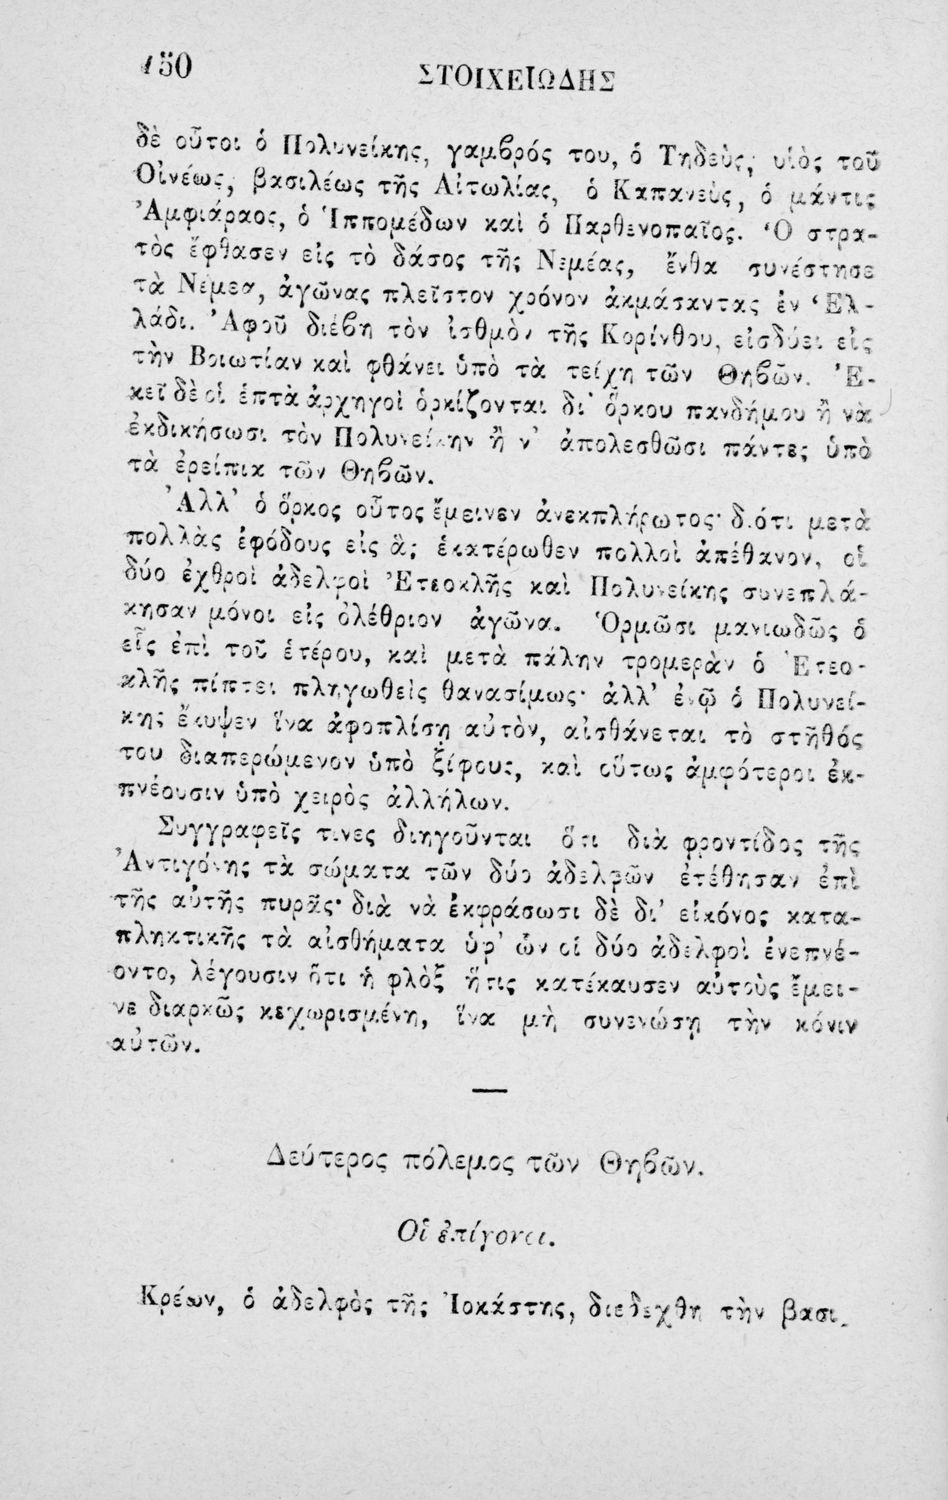 150
ΣΤΟΙΧΕΙΩΔΗΣ
δὲ οὗτοι ὁ Πολυνείκης, γαμβρός του, ὁ Τηδεὺς, υἱὸς τοῦ
Οἰνέως, βασιλέως τῆς Αἰτωλίας, ὁ Καπανεὺς, ὁ μάντις
Ἀμφιάραος, ὁ Ἱππομέδων καὶ ὁ Παρθενοπαῖος. Ὁ στρα-
τὸς ἔφθασεν εἰς τὸ δάσος τῆς Νεμέας, ἔνθα συνέστησε
τὰ Νέμεα, ἀγῶνας πλεῖστον χρόνον ἀκμάσαντας ἐν Ἑλ-
λάδι. Ἀφοῦ διέβη τὸν ἰσθμὸν τῆς Κορίνθου, εἰσδύει εἰς
τὴν Βοιωτίαν καὶ φθάνει ὑπὸ τὰ τείχη τῶν Θηβῶν. Ἐ-
κεῖ δὲ οἱ ἑπτὰ ἀρχηγοὶ ὁρκίζονται δι' ὅρκου πανδήμου ἢ νὰ
ἐκδικήσωσι τὸν Πολυνείκην ἢ ν' ἀπολεσθῶσι πάντες ὑπὸ
τὰ ἐρείπια τῶν Θηβῶν.
Ἀλλ' ὁ ὅρκος οὗτος ἔμεινεν ἀνεκπλήρωτος· διότι μετὰ
πολλὰς ἐφόδους εἰς ἃς ἑκατέρωθεν πολλοὶ ἀπέθανον, οἱ
δύο ἐχθροὶ ἀδελφοὶ Ἐτεοκλῆς καὶ Πολυνείκης συνεπλά-
κησαν μόνοι εἰς ὀλέθριον ἀγῶνα. Ὁρμῶσι μανιωδῶς ὁ
εἷς ἐπὶ τοῦ ἑτέρου, καὶ μετὰ πάλην τρομερὰν ὁ Ἐτεο-
κλῆς πίπτει πληγωθεὶς θανασίμως· ἀλλ' ἐνῷ ὁ Πολυνεί-
κης ἔκυψεν ἵνα ἀφοπλίσῃ αὐτὸν, αἰσθάνεται τὸ στῆθός
του διαπερώμενον ὑπὸ ξίφους, καὶ οὕτως ἀμφότεροι ἐκ-
πνέουσιν ὑπὸ χειρὸς ἀλλήλων.
Συγγραφεῖς τινες διηγοῦνται ὅτι διὰ φροντίδος τῆς
Ἀντιγόνης τὰ σώματα τῶν δύο ἀδελφῶν ἐτέθησαν ἐπὶ
τῆς αὐτῆς πυρᾶς· διὰ νὰ ἐκφράσωσι δὲ δι' εἰκόνος κατα-
πληκτικῆς τὰ αἰσθήματα ὑφ' ὧν οἱ δύο ἀδελφοὶ ἐνεπνέ-
οντο, λέγουσιν ὅτι ἡ φλὸξ ἥτις κατέκαυσεν αὐτοὺς ἔμει-
νε διαρκῶς κεχωρισμένη, ἵνα μὴ συνενώσῃ τὴν κόνιν
αὐτῶν.
Δεύτερος πόλεμος τῶν Θηβῶν.
Οἱ ἐπίγονοι.
Κρέων, ὁ ἀδελφὸς τῆς Ἰοκάστης, διεδέχθη τὴν βασι-